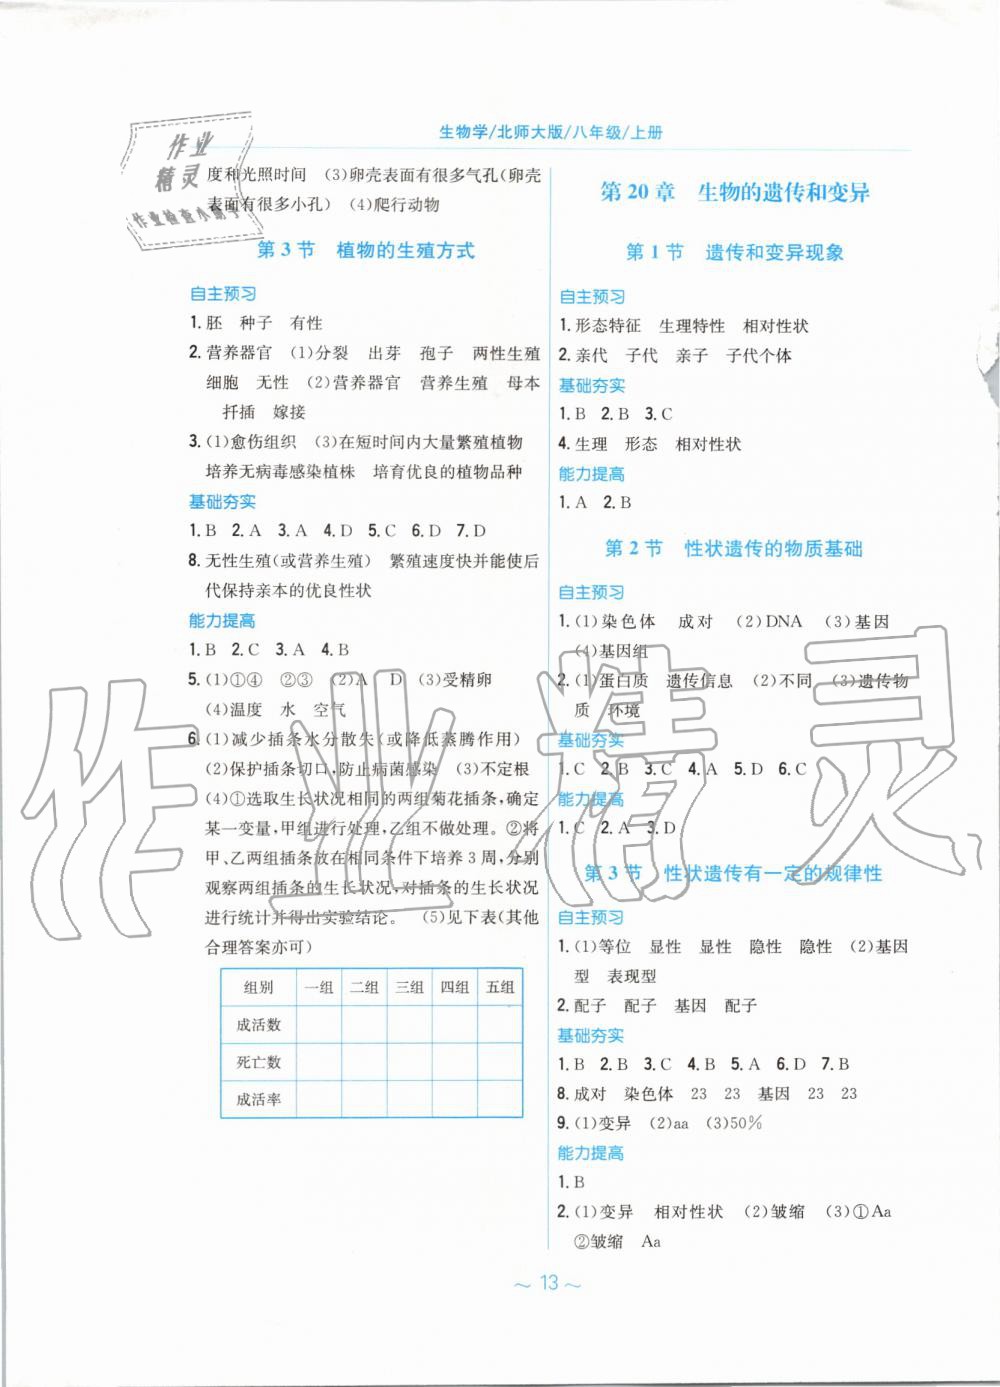 生物学/北师大版/八年级/上册
作业
精灵
作业检查小助手
度和光照时间　(3)卵壳表面有很多气孔(卵壳
表面有很多小孔)　(4)爬行动物
第 3 节　植物的生殖方式
自主预习
1. 胚　种子　有性
2. 营养器官　(1)分裂　出芽　孢子　两性生殖
细胞　无性　(2)营养器官　营养生殖　母本
扦插　嫁接
3. (1)愈伤组织　(3)在短时间内大量繁殖植物
培养无病毒感染植株　培育优良的植物品种
基础夯实
1. B　2. A　3. A　4. D　5. C　6. D　7. D
8. 无性生殖(或营养生殖)　繁殖速度快并能使后
代保持亲本的优良性状
能力提高
1. B　2. C　3. A　4. B
5. (1)①④　②③　(2)A　D　(3)受精卵
(4)温度　水　空气
6. (1)减少插条水分散失(或降低蒸腾作用)
(2)保护插条切口,防止病菌感染　(3)不定根
(4)①选取生长状况相同的两组菊花插条,确定
某一变量,甲组进行处理,乙组不做处理。②将
甲、乙两组插条放在相同条件下培养 3 周,分别
观察两组插条的生长状况,对插条的生长状况
进行统计并得出实验结论。　(5)见下表(其他
合理答案亦可)
组别　一组　二组　三组　四组　五组
成活数
死亡数
成活率
第 20 章　生物的遗传和变异
第 1 节　遗传和变异现象
自主预习
1. 形态特征　生理特性　相对性状
2. 亲代　子代　亲子　子代个体
基础夯实
1. B　2. B　3. C
4. 生理　形态　相对性状
能力提高
1. A　2. B
第 2 节　性状遗传的物质基础
自主预习
1. (1)染色体　成对　(2)DNA　(3)基因
(4)基因组
2. (1)蛋白质　遗传信息　(2)不同　(3)遗传物
质　环境
基础夯实
1. C　2. B　3. C　4. A　5. D　6. C
能力提高
1. C　2. A　3. D
第 3 节　性状遗传有一定的规律性
自主预习
1. (1)等位　显性　显性　隐性　隐性　(2)基因
型　表现型
2. 配子　配子　基因　配子
基础夯实
1. B　2. B　3. C　4. B　5. A　6. D　7. B
8. 成对　染色体　23　23　基因　23　23
9. (1)变异　(2)aa　(3)50%
能力提高
1. B
2. (1)变异　相对性状　(2)皱缩　(3)①Aa
②皱缩　Aa
～ 13 ～
作业精灵